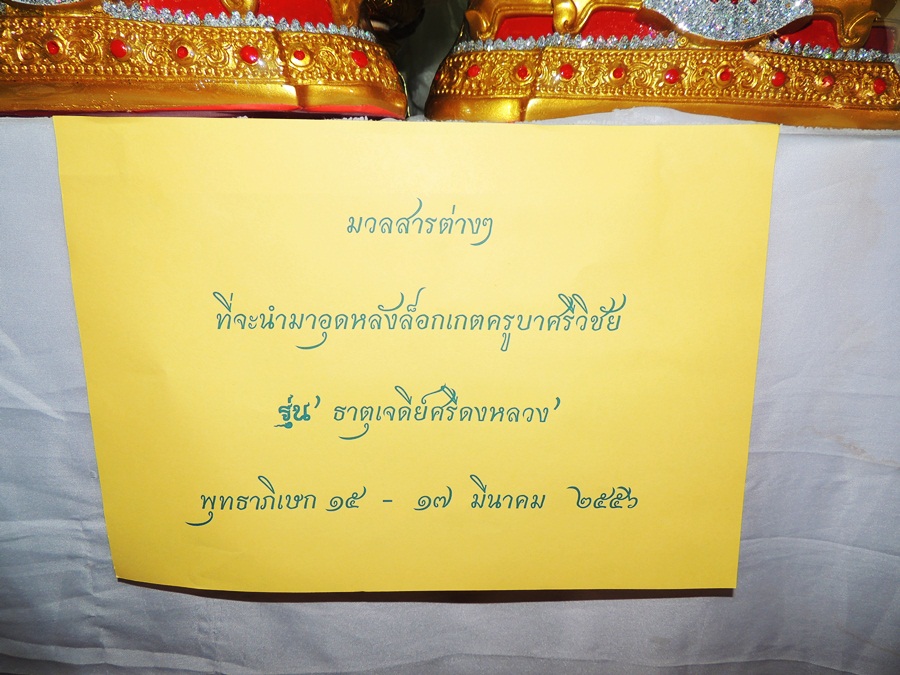 มวลสารต่างๆ
ที่จะนำมาอุดหลังล็อกเกตครูบาศรีวิชัย
รุ่น' ธาตุเจดีย์ศรีดงหลวง'
พุทธาภิเษก ๑๕ - ๑๗ มีนาคม ๒๕๕๖